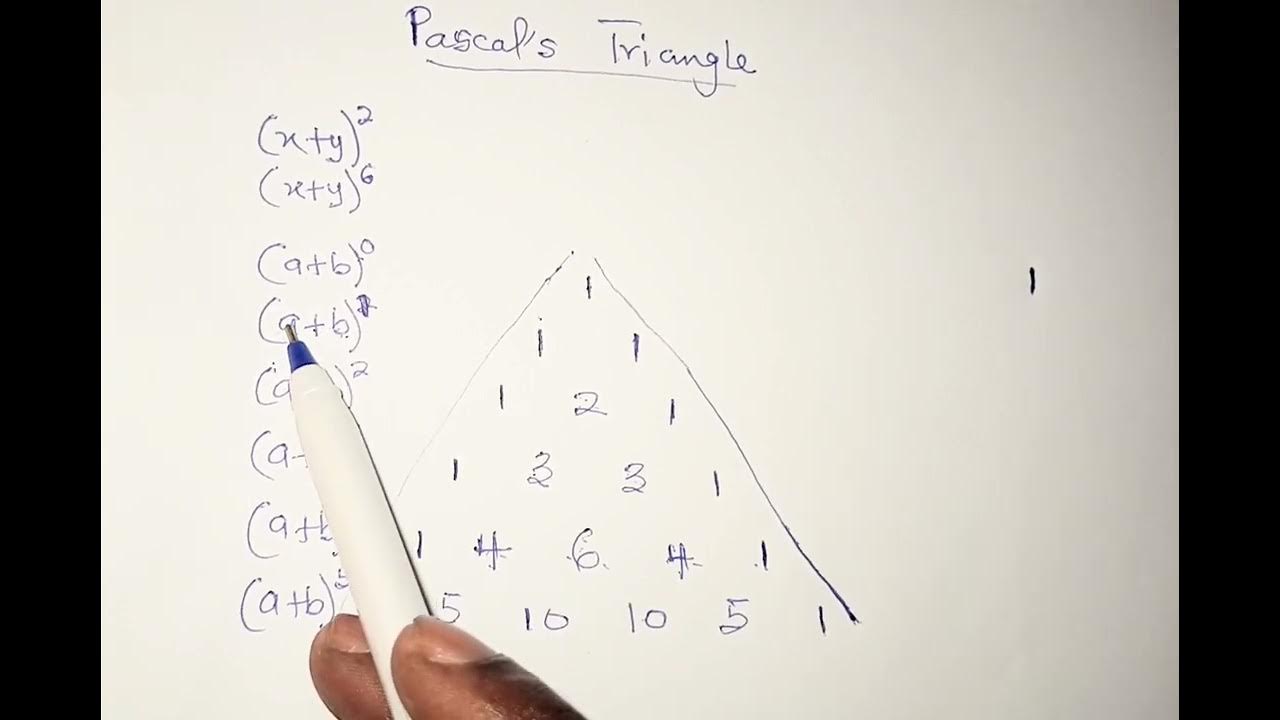 Pascal's Triangle
(x+y)^2
(x+y)^6
(a+b)^0 1 1
(a+b)^1 1 1
(a )^2 1 2 1
(a 1 3 3 1
(a+b 1 4 6 4 1
(a+b)^5 5 10 10 5 1